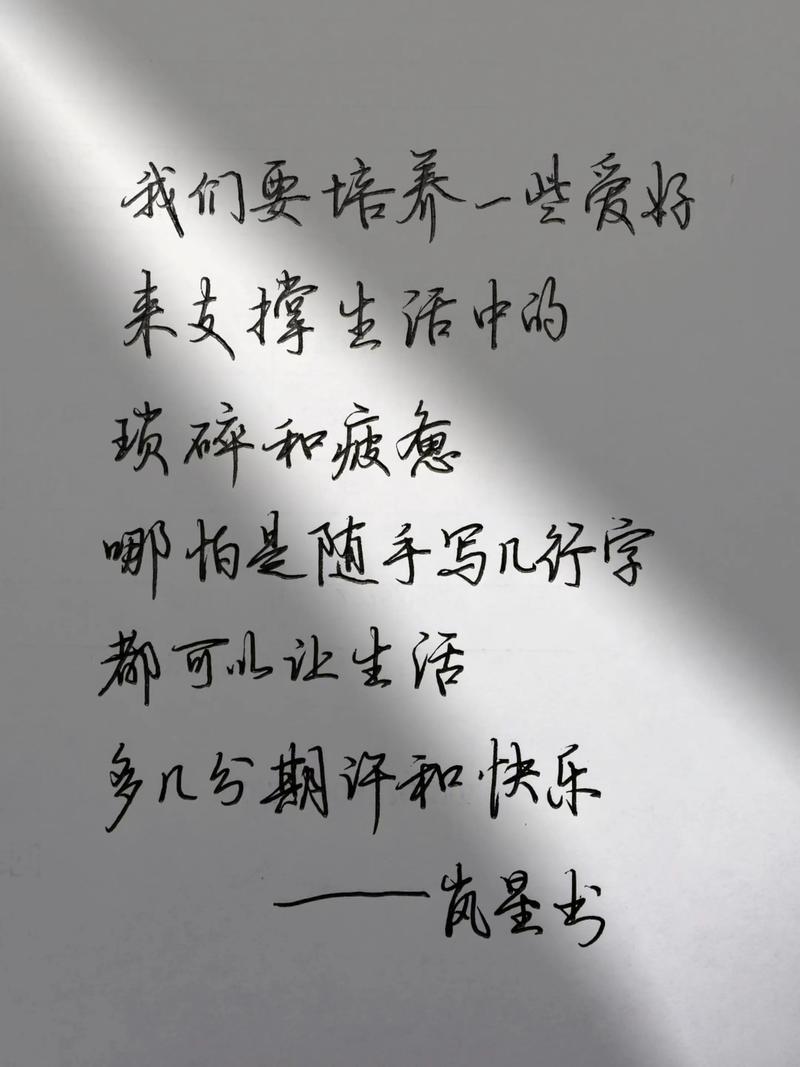 我们要培养一些爱好
来支撑生活中的
琐碎和疲惫
哪怕是随手写几行字
都可以让生活
多几分期许和快乐
——岚星书